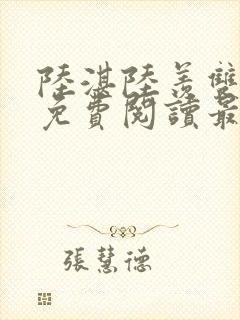 陸湛陸羨雙
免費閱讀最
張慧德